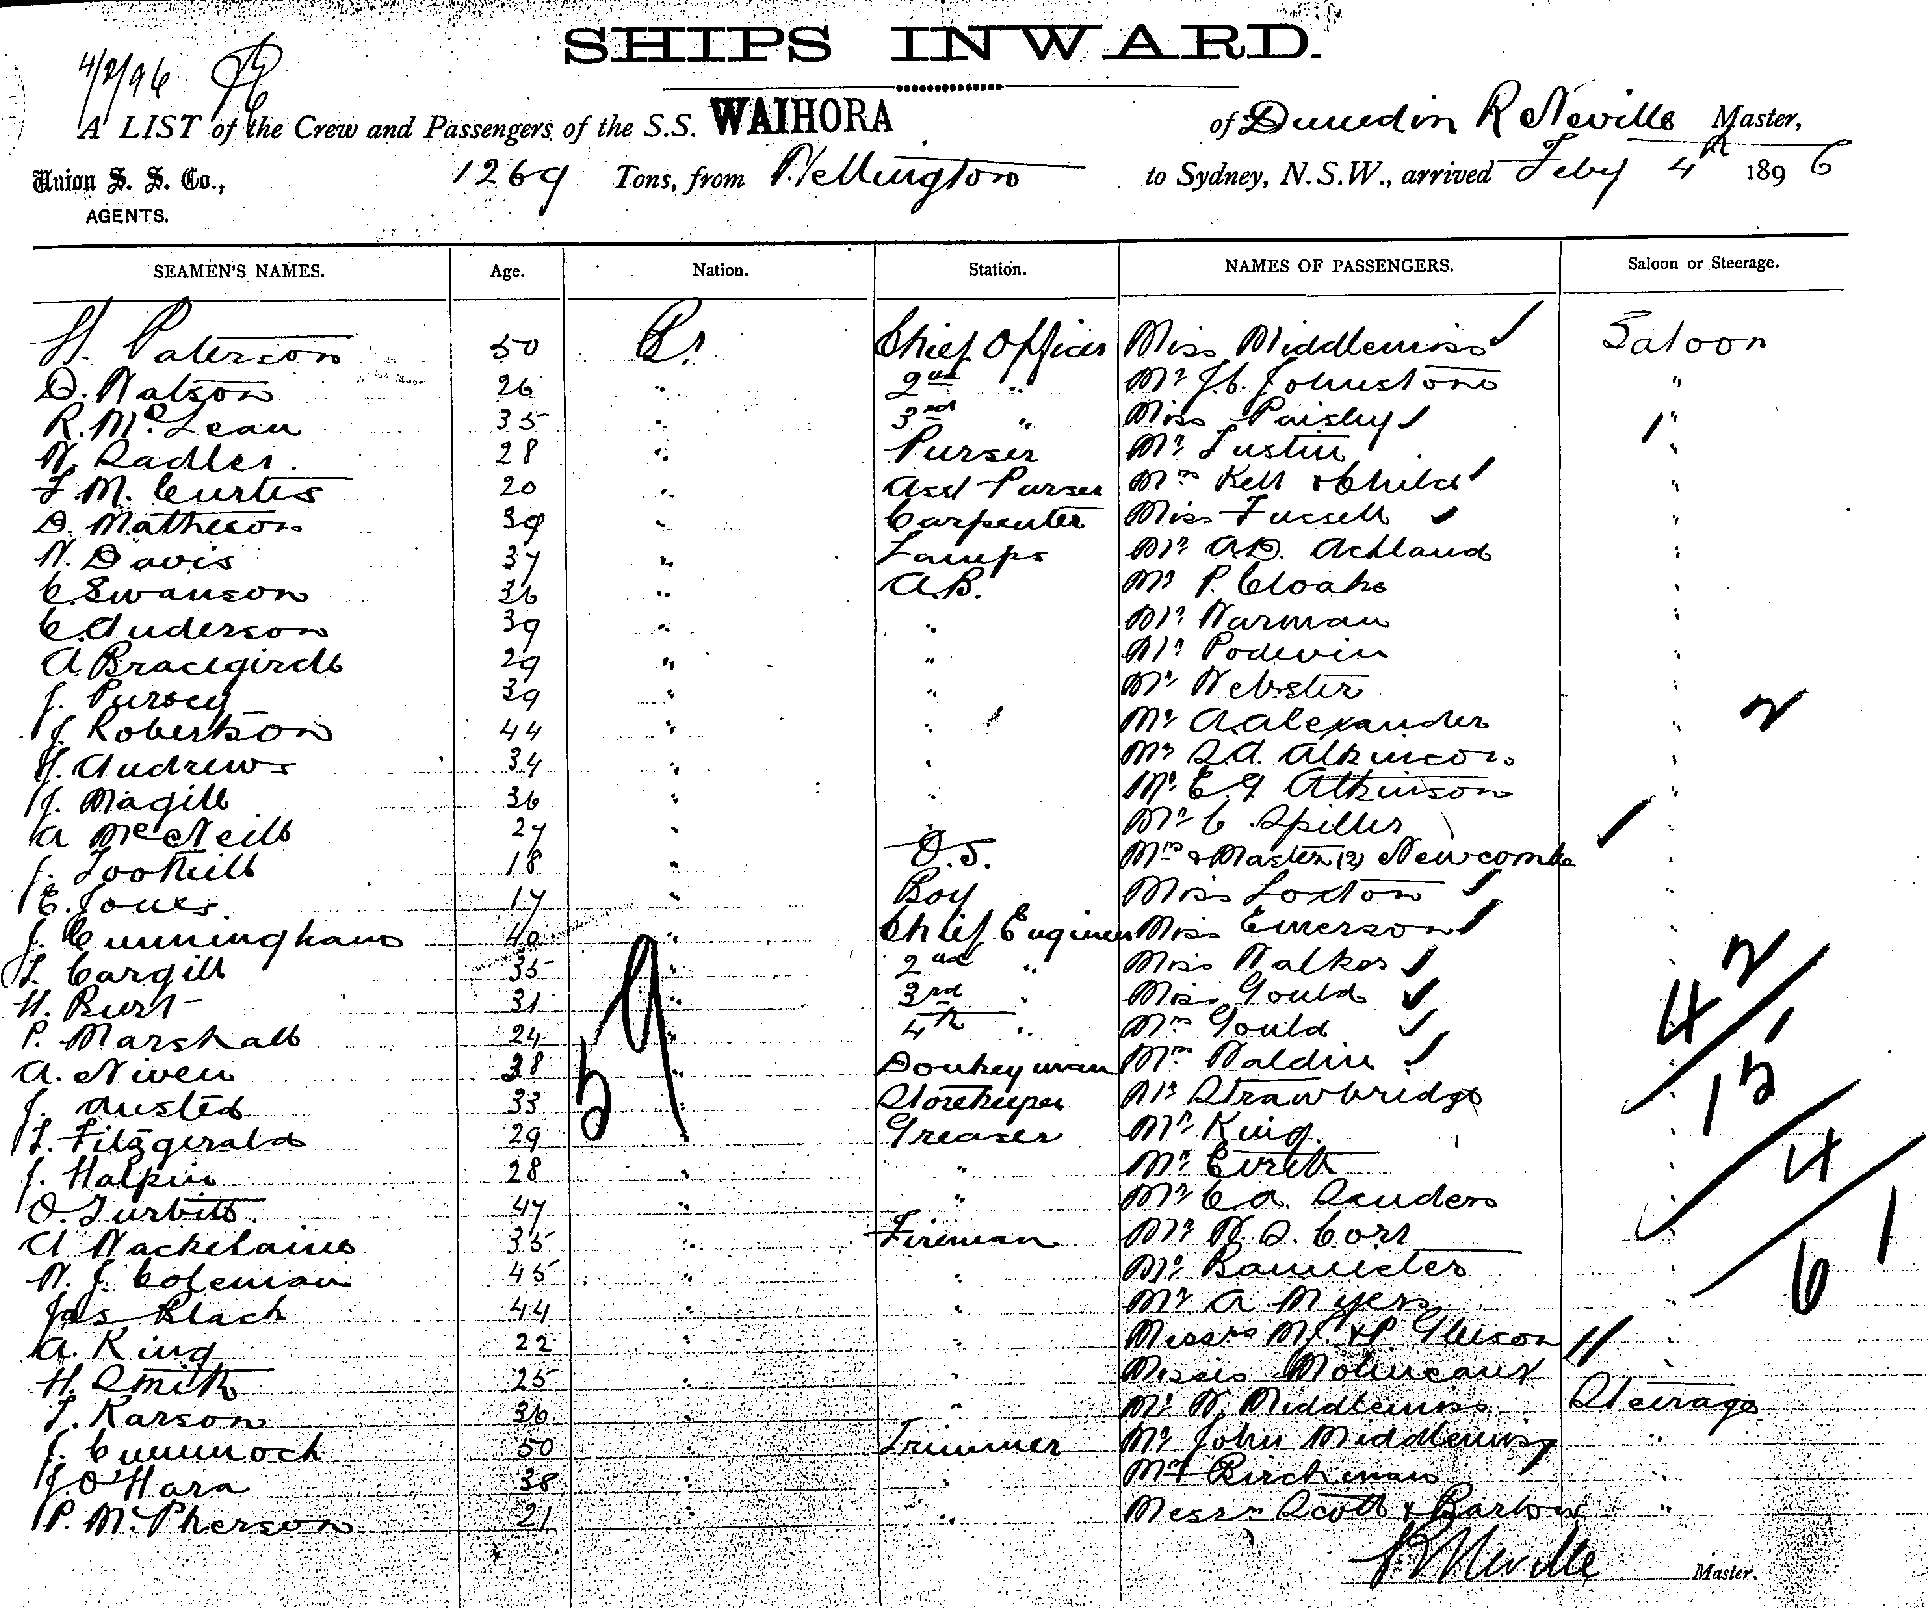 SHIPS INWARD.
4/2/96
A LIST of the Crew and Passengers of the S.S. WAIHORA of Dunedin R Neville Master,
Union S. S. Co., 1269 Tons, from Wellington to Sydney, N.S.W., arrived Feby 4th 1896
AGENTS.
SEAMEN'S NAMES. Age. Nation. Station. NAMES OF PASSENGERS. Saloon or Steerage.
H. Paterson 50 Br Chief Officer Miss Middlemiss Saloon
D. Watson 26 " 2nd " Mr J.C. Johnstone "
R. McLean 35 " 3rd " Miss Paisley "
W. Sadler 28 " Purser Mr Lustin "
F. M. Curtis 20 " Asst Purser Mrs Kell & Child "
D. Matheson 39 " Carpenter Miss Fussell "
W. Davis 37 " Lamps Mr A.D. Achland "
C. Swanson 36 " A.B. Mr P. Cloake "
C. Anderson 39 " " Mr Warman "
A Bracegirdle 29 " " Mr Podevin "
J. Pursey 39 " " Mr Webster "
J. Robertson 44 " " Mr A. Alexander "
H. Andrews 34 " " Mr S.A. Atkinson "
J. Magill 36 " " Mr E G Atkinson "
A McNeill 27 " " Mr C. Spiller "
J. Toohill 18 " O.S. Mrs & Master (2) Newcombe "
E. Jones 17 " Boy Miss Loxton "
J. Cunningham 40 " Chief Engineer Miss Emerson "
L Cargill 35 " 2nd " Miss Walker "
H. Burt 31 " 3rd " Miss Gould "
P. Marshall 24 " 4th " Mrs Gould "
A. Niven 38 " Donkeyman Mrs Waldin "
J. Austed 33 " Storekeeper Mr Strawbridge "
T. Fitzgerald 29 " Greaser Mr King "
J. Halpin 28 " " Mr
O. Turbitt 47 " " Mr C A. Sanders "
A Mackelaine 35 " Fireman Mr W. S. Corr "
W. J. Coleman 45 " " Mr Bannister "
Jas Black 44 " " Mr A Myers "
A. King 22 " " Messrs M. & P Gleeson "
H. Smith 25 " " Misses Molineaux
T. Karson 36 " " Mr W. Middlemiss Steerage
J. Cummock 50 " Trimmer Mr John Middlemiss "
J O'Hara 38 " " Mr Birchman "
P. McPherson 21 " " Messrs Scott & Barlow "
R Neville Master.